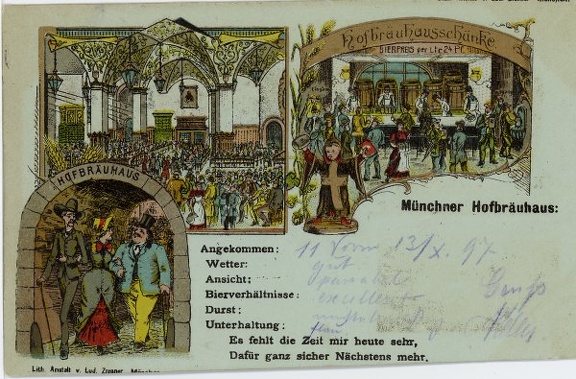 Hofbräuhausschänke.
BIERPREIS per Ltr 24 Pf.
HOFBRÄUHAUS
Münchner Hofbräuhaus:
Angekommen: 11 Vorm 13/X. 97
Wetter: gut
Ansicht:
Bierverhältnisse: excellent
Durst:
Unterhaltung:
Gruß
Es fehlt die Zeit mir heute sehr,
Dafür ganz sicher Nächstens mehr.
Lith. Anstalt v. Lud. Zrenner München